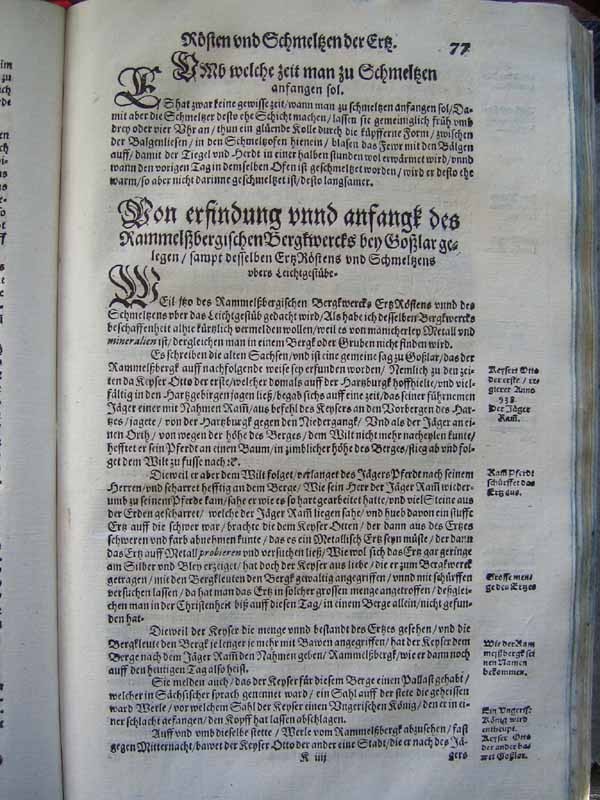 Rösten vnd Schmeltzen der Ertz. 77
VMb welche zeit man zu Schmeltzen
anfangen sol.
ES hat zwar keine gewisse zeit/ wann man zu schmeltzen anfangen sol/ Da-
mit aber die Schmeltzer desto ehe Schicht machen/ lassen sie gemeiniglich früh vmb
drey oder vier Vhr an/ thun ein glüende Kolle durch die küpfferne Form/ zwischen
der Balgenliesen/ in den Schmeltzofen hienein/ blasen das Fewr mit den Bälgen
auff/ damit der Tiegel vnd Herdt in einer halben stunden wol erwärmet wird/ vnnd
wann den vorigen Tag in demselben Ofen ist geschmeltzet worden/ wird er desto ehe
warm/ so aber nicht darinne geschmeltzet ist/ desto langsamer.
Von erfindung vnnd anfangk des
Rammelßbergischen Bergkwercks bey Goßlar ge-
legen/ sampt desselben Ertz Röstens vnd Schmeltzens
vbers Leichtgestübe.
WEil itzo des Rammelßbergischen Bergkwercks Ertz Röstens vnnd des
Schmeltzens vber das Leichtgestüb gedacht wird/ Als habe ich desselben Bergkwercks
beschaffenheit alhie kürtzlich vermelden wollen/ weil es von mancherley Metall vnd
mineralien ist/ dergleichen man in einem Berg oder Gruben nicht finden wird.
Es schreiben die alten Sachsen/ vnd ist eine gemeine sag zu Goßlar/ das der
Rammelßbergk auff nachfolgende weise sey erfunden worden/ Nemlich zu den zei-
ten da Keyser Otto der erste/ welcher domals auff der Hartzburgk hoffhielte/ vnd viel-
fältig in den Hartzgebirgen jagen ließ/ begab sichs auff eine zeit/ das seiner führnemen
Jäger einer mit Nahmen Ram̃/ aus befehl des Keysers an den Vorbergen des Har-
tzes/ jagete/ von der Hartzburgk gegen den Niedergangk/ Vnd als der Jäger an ei-
nen Orth/ von wegen der höhe des Berges/ dem Wilt nicht mehr nacheylen kunte/
hefftet er sein Pferdt an einen Baum/ in zimblicher höhe des Berges/ stieg ab vnd fol-
get dem Wilt zu fusse nach.
Keysers Otto
der erste/ re-
gieret Anno
938.
Der Jäger
Ram̃.
Dieweil er aber dem Wilt folget/ verlanget des Jägers Pferdt nach seinem
Herren/ vnd scharret hefftig an dem Berge/ Wie sein Herr der Jäger Ram̃ wider-
umb zu seinem Pferde kam/ sahe er wie es so hart gearbeitet hatte/ vnd viel Steine aus
der Erden gescharret/ welche der Jäger Ram̃ liegen sahe/ vnd hueb davon ein stuffe
Ertz auff die schwer war/ brachte die dem Keyser Otten/ der dann aus des Ertzes
schweren vnd farb abnehmen kunte/ das es ein Metallisch Ertz seyn müste/ der dann
das Ertz auff Metall probieren vnd versuchen ließ/ Wiewol sich das Ertz gar geringe
am Silber vnd Bley erzeiget/ hat doch der Keyser aus liebe/ die er zum Bergkwerck
getragen/ mit den Bergkleuten den Bergk gewaltig angegriffen/ vnnd mit schürffen
versuchen lassen/ da hat man das Ertz in solcher grossen menge angetroffen/ deßglei-
chen man in der Christenheit biß auff diesen Tag/ in einem Berge allein/ nicht gefun-
den hat.
Ram̃ Pferdt
schürffet das
Ertz aus.
Grosse men-
ge des Ertzes
Dieweil der Keyser die menge vnnd bestandt des Ertzes gesehen/ vnd die
Bergkleut den Bergk je lenger je mehr mit Bawen angegriffen/ hat der Keyser dem
Berge nach dem Jäger Ram̃ den Nahmen geben/ Rammelßbergk/ wie er dann noch
auff den heutigen Tag also heist.
Wie der Ram
melßbergk sei
nen Namen
bekommen.
Sie melden auch/ das der Keyser für diesem Berge einen Pallast gehabt/
welcher in Sächsischer sprach genennet ward/ ein Sahl auff der stete die geheissen
ward Werle/ vor welchem Sahl der Keyser einen Vngerischen König/ den er in ei-
ner schlacht gefangen/ den Kopff hat lassen abschlagen.
Ein Vngerisc.
König wird
entheupt.
Auff vnd vmb dieselbe stette/ Werle vom Rammelßbergk abzusehen/ fast
gegen Mitternacht/ bawet der Keyser Otto der ander eine Stadt/ die er nach des Jä-
Keyser Otto
der ander ba-
wet Goßlar.
K iiij gers